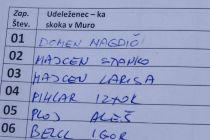 Zap. Štev. Udeleženec – ka skoka v Muro
01 DOMEN NAGDIČ
02 HADLEN STANKO
03 HADLEN LARISA
04 PIHLAR IZTOK
05 PLOJ ALEŠ
06 BELL IGOR